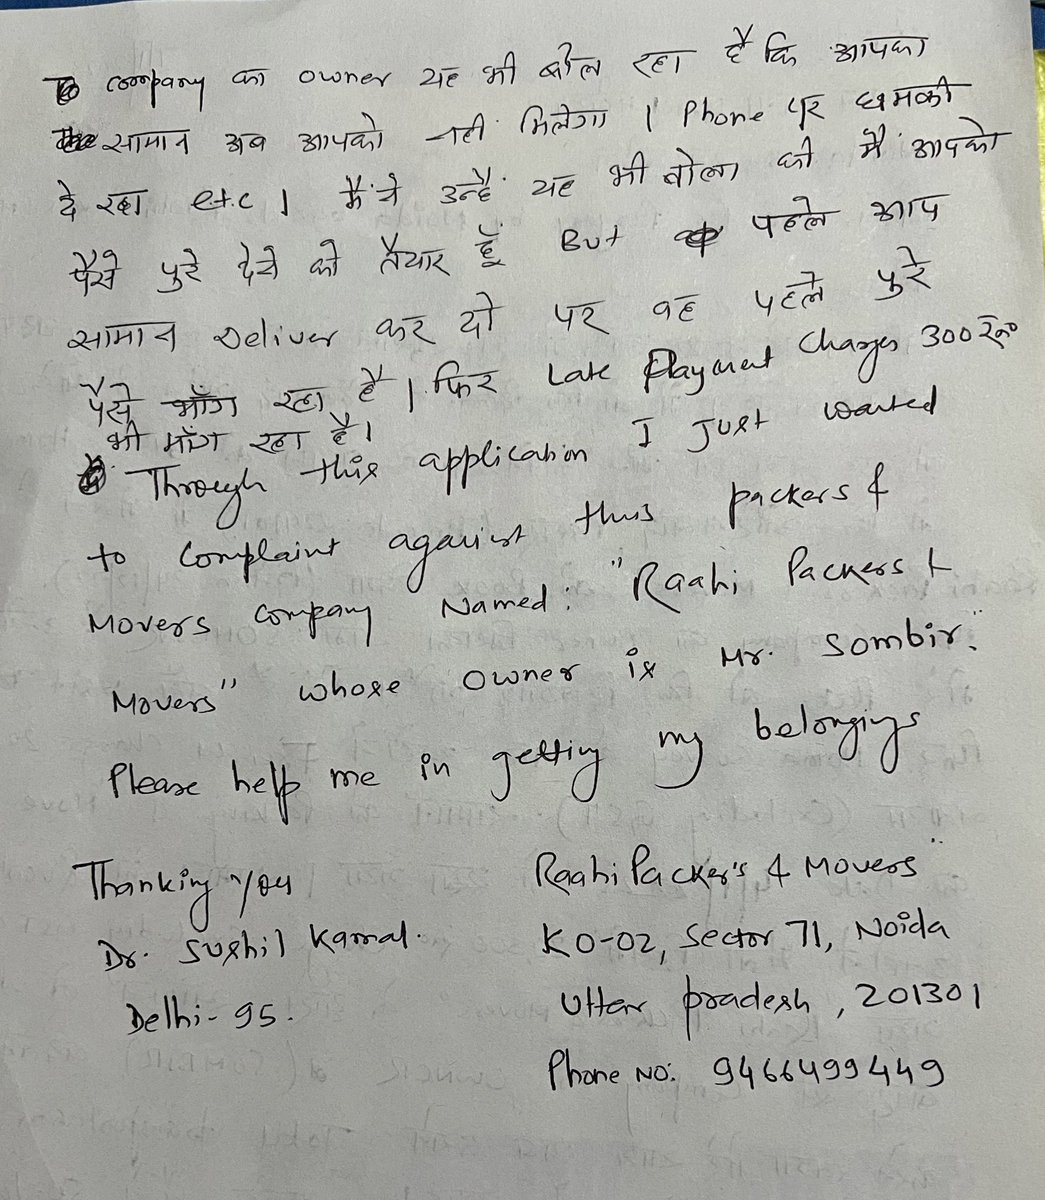 company का owner यह भी बोल रहा है कि आपका
सामान अब आपको नही मिलेगा । Phone पर धमकी
दे रहा etc । मैंने उन्हें यह भी बोला की मैं आपको
पैसे पुरे देने को तैयार हूँ But पहले आप
सामान Deliver कर दो पर वह पहले पुरे
पैसे माँग रहा है । फिर Late Payment Charges 300 रू०
भी माँग रहा है।
Through this application I just wanted
to complaint against thus packers &
Movers company Named: "Raahi Packers &
Movers" whose owner is Mr. Sombir."
Please help me in getting my belongings
Thanking you
Dr. Sushil Kamal.
Delhi-95.
Raahi Packer's & Movers"
KO-02, Sector 71, Noida
Uttar pradesh, 201301
Phone No: 9466499449